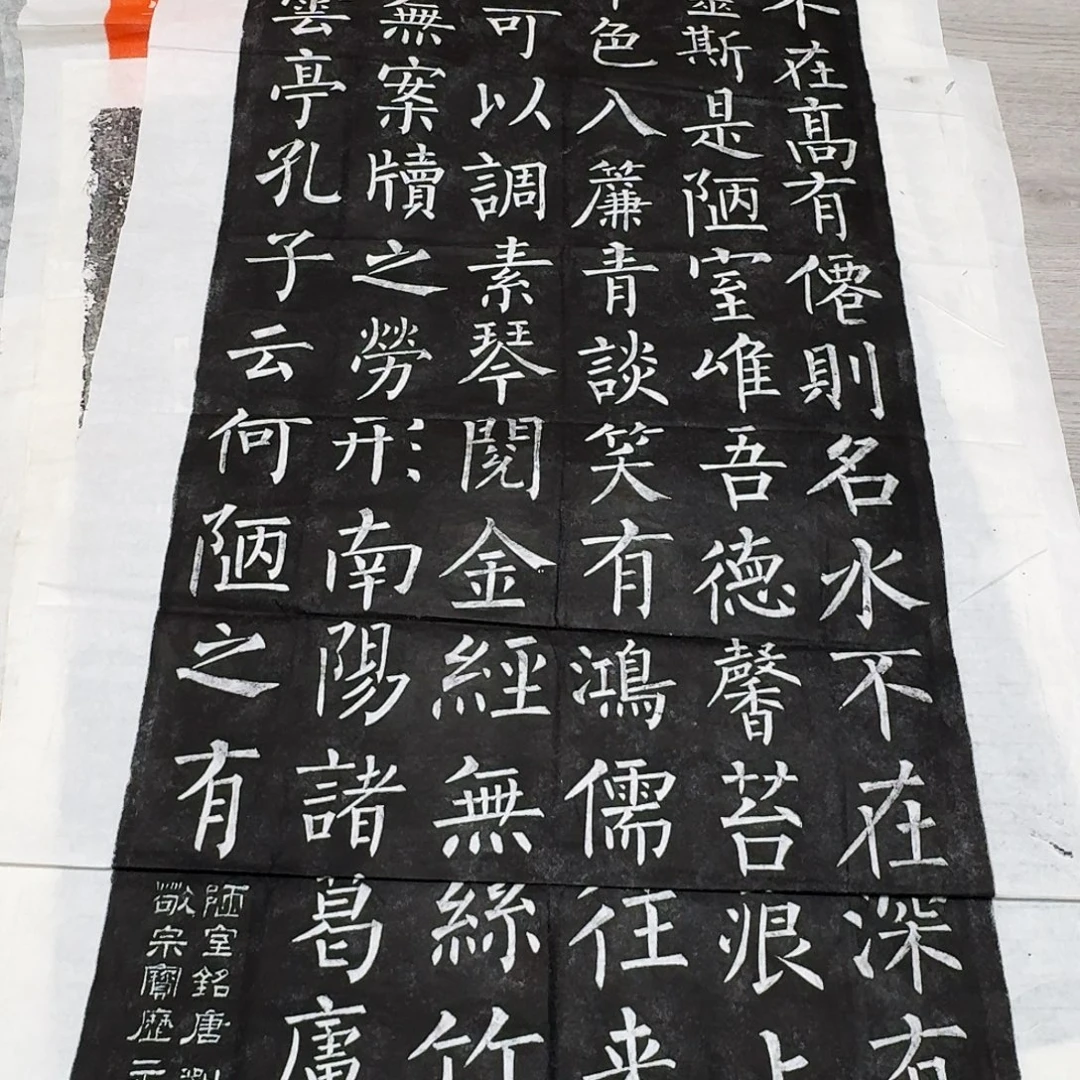 不在高有僊則名水不在深有
靈斯是陋室唯吾德馨苔痕上
色入簾青談笑有鴻儒往来
可以調素琴閱金經無絲竹
無案牘之勞形南陽諸葛廬
雲亭孔子云何陋之有
陋室銘唐劉
敬宗寶歷二